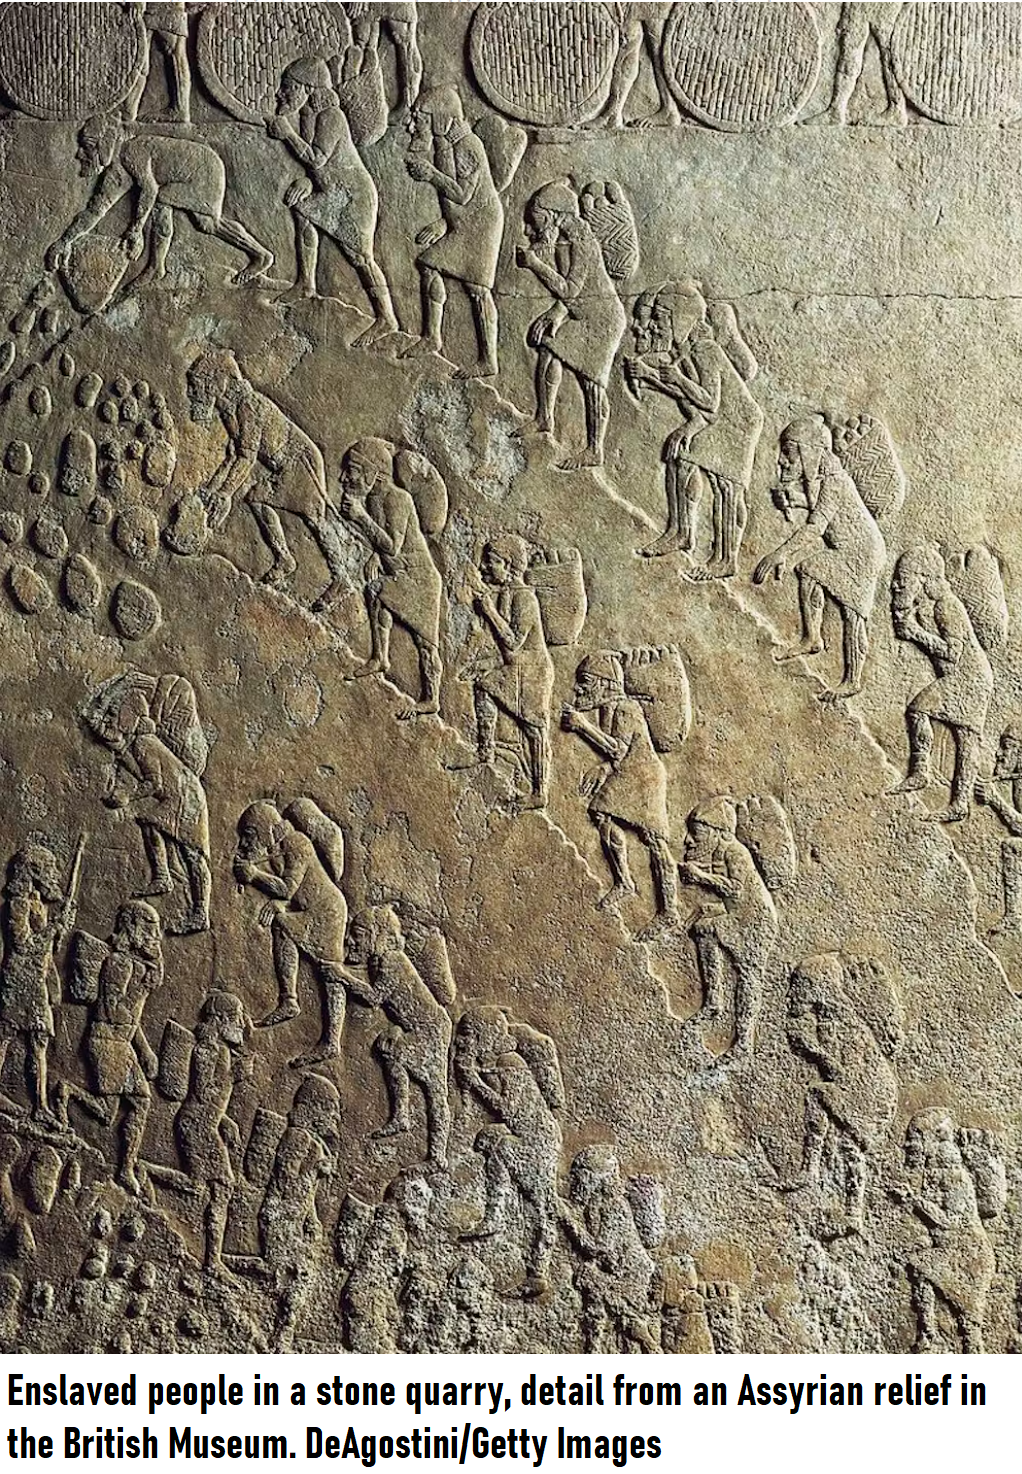 Enslaved people in a stone quarry, detail from an Assyrian relief in
the British Museum. DeAgostini/Getty Images